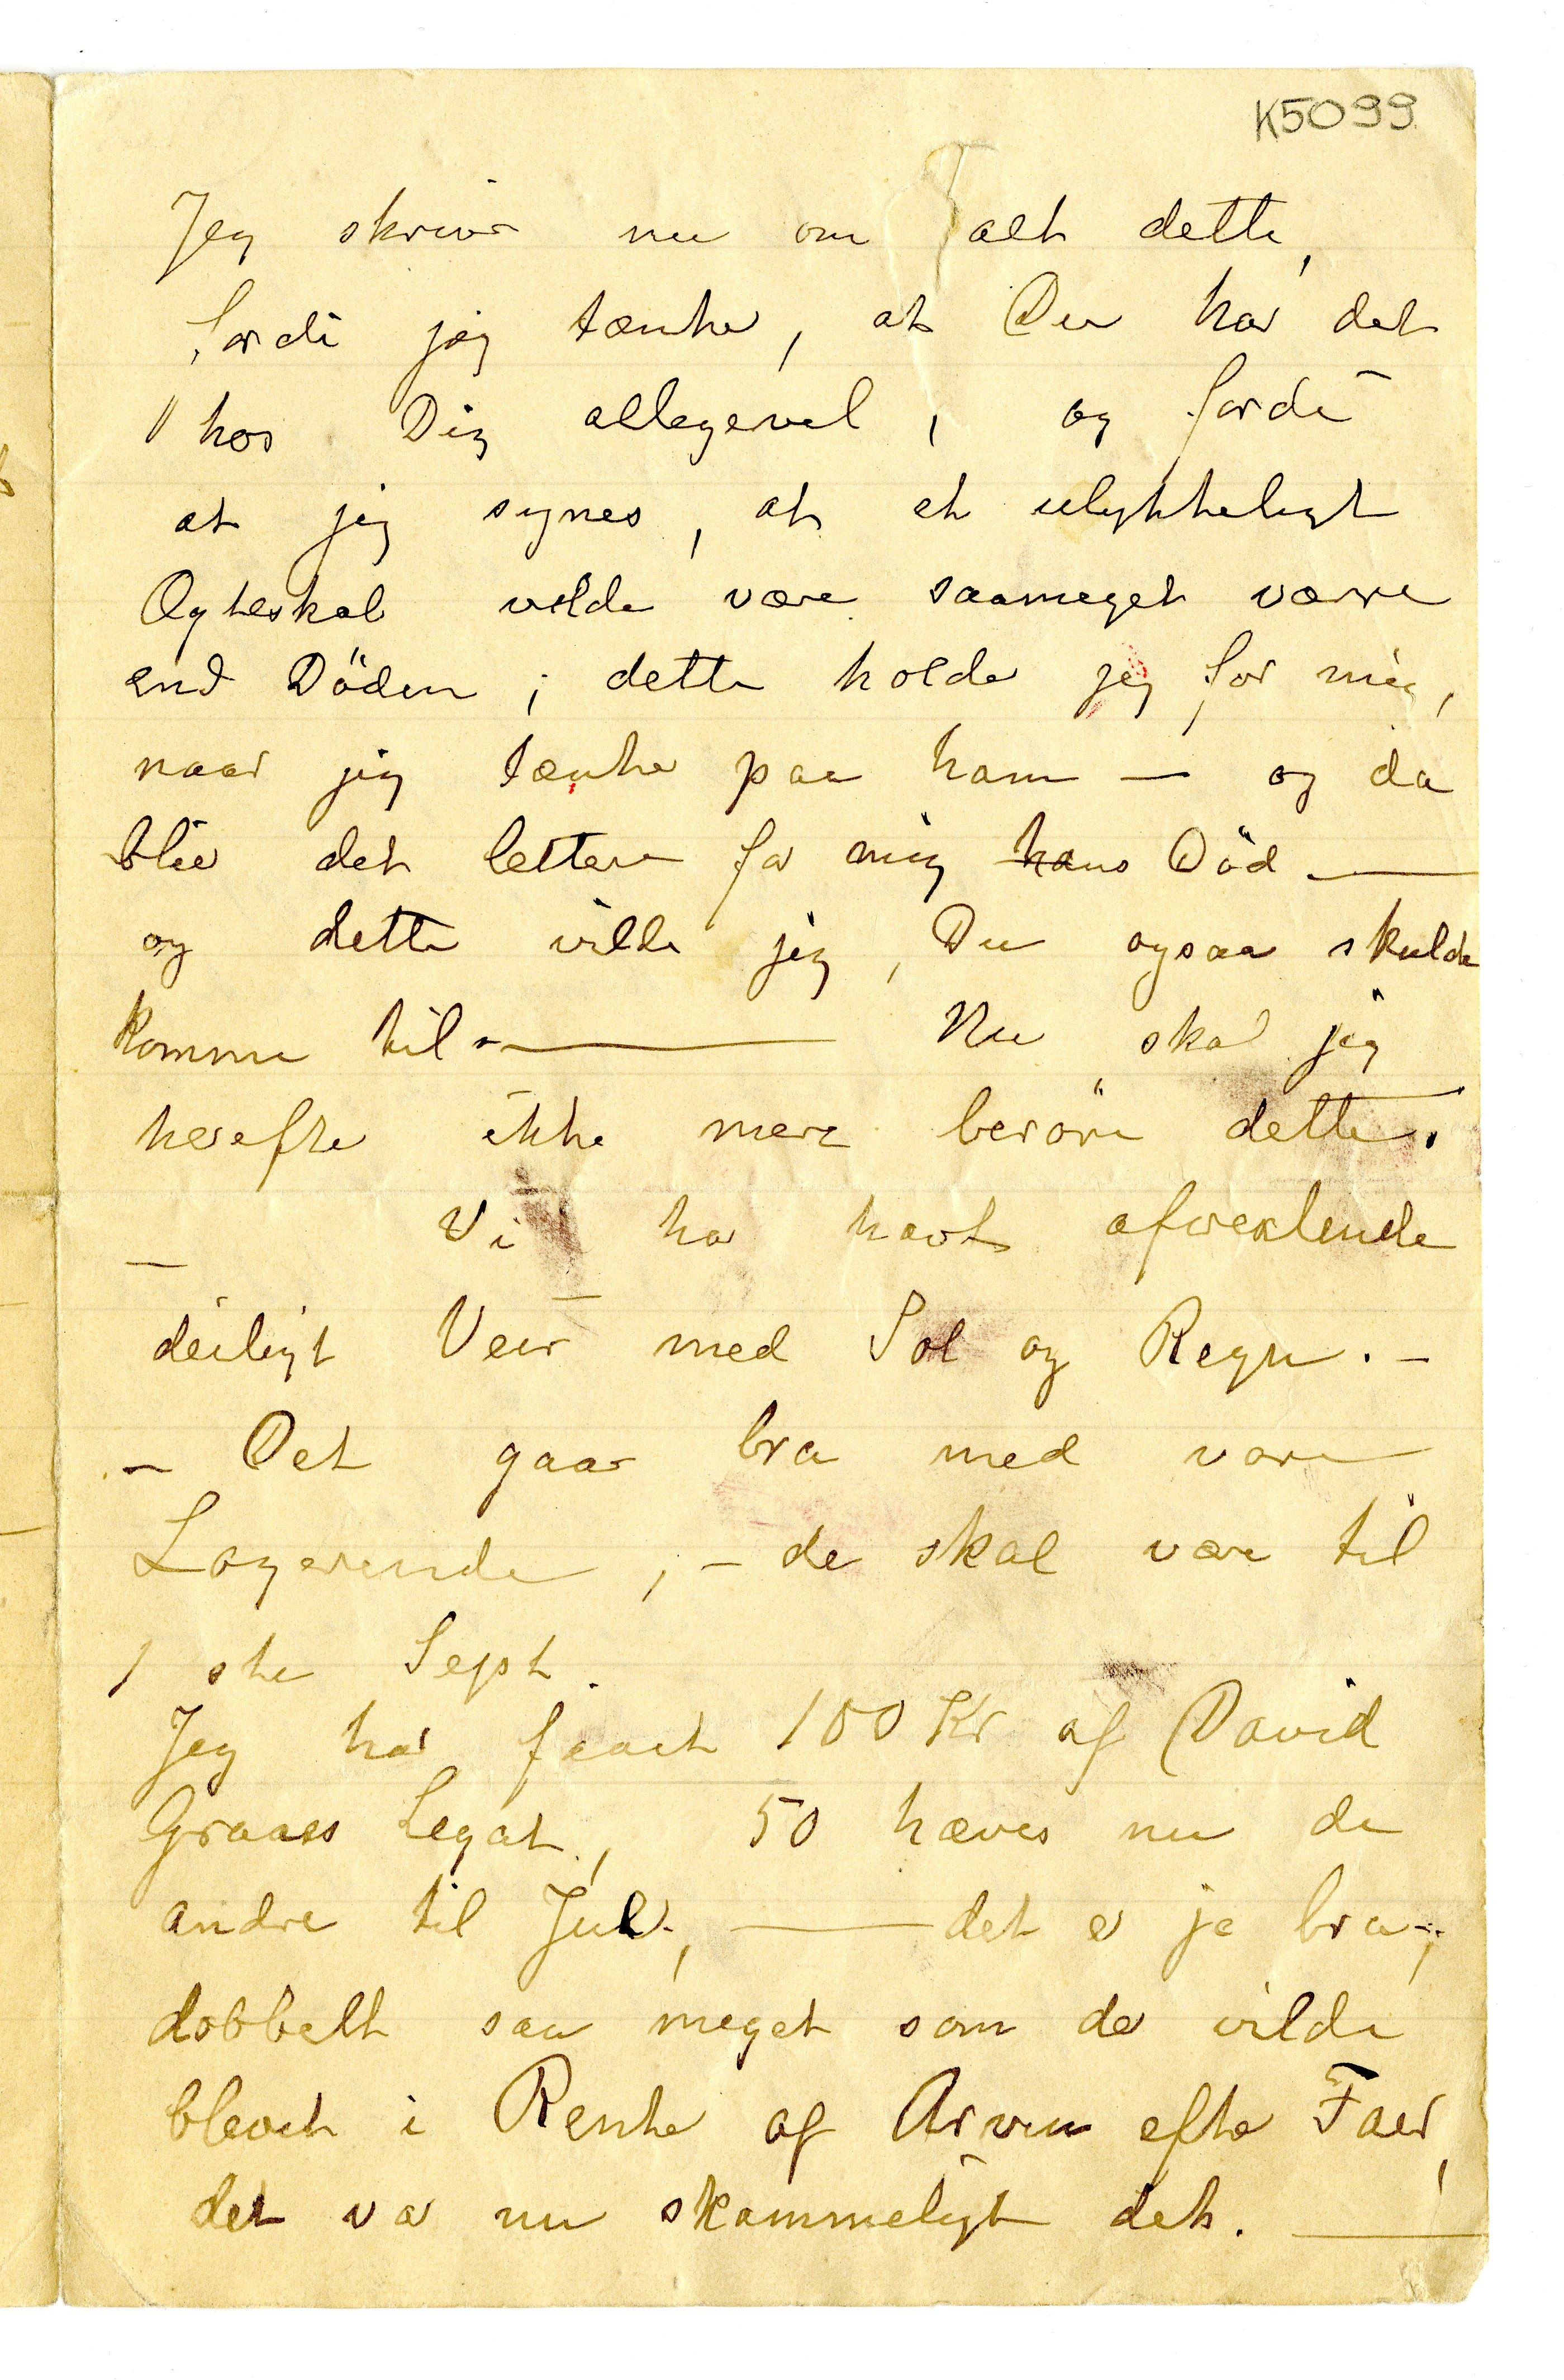 K5099
Jeg skriver nu om alt dette,
fordi jeg tænker, at Du har det
hos Dig allegevel, og fordi
at jeg synes, at et ulykkeligt
Ægteskab vilde være saameget værre
end Döden; dette holder jeg for mig,
naar jeg tænker paa ham — og da
blir det lettere for mig hans Död —
og dette vilde jeg, Du ogsaa skulde
komme til — Nu skal jeg
herefter ikke mere beröre dette.
— Vi har havt afvexlende
deiligt Veir med Sol og Regn. —
— Det gaar bra med vore
Logerende, — de skal være til
1ste Sept.
Jeg har faaet 100 Kr af David
Graaes Legat, 50 hæves nu de
andre til Jul, — det er jo bra;
dobbelt saa meget som der vilde
blevet i Rente af Arven efter Faer,
det var nu skammeligt det. —